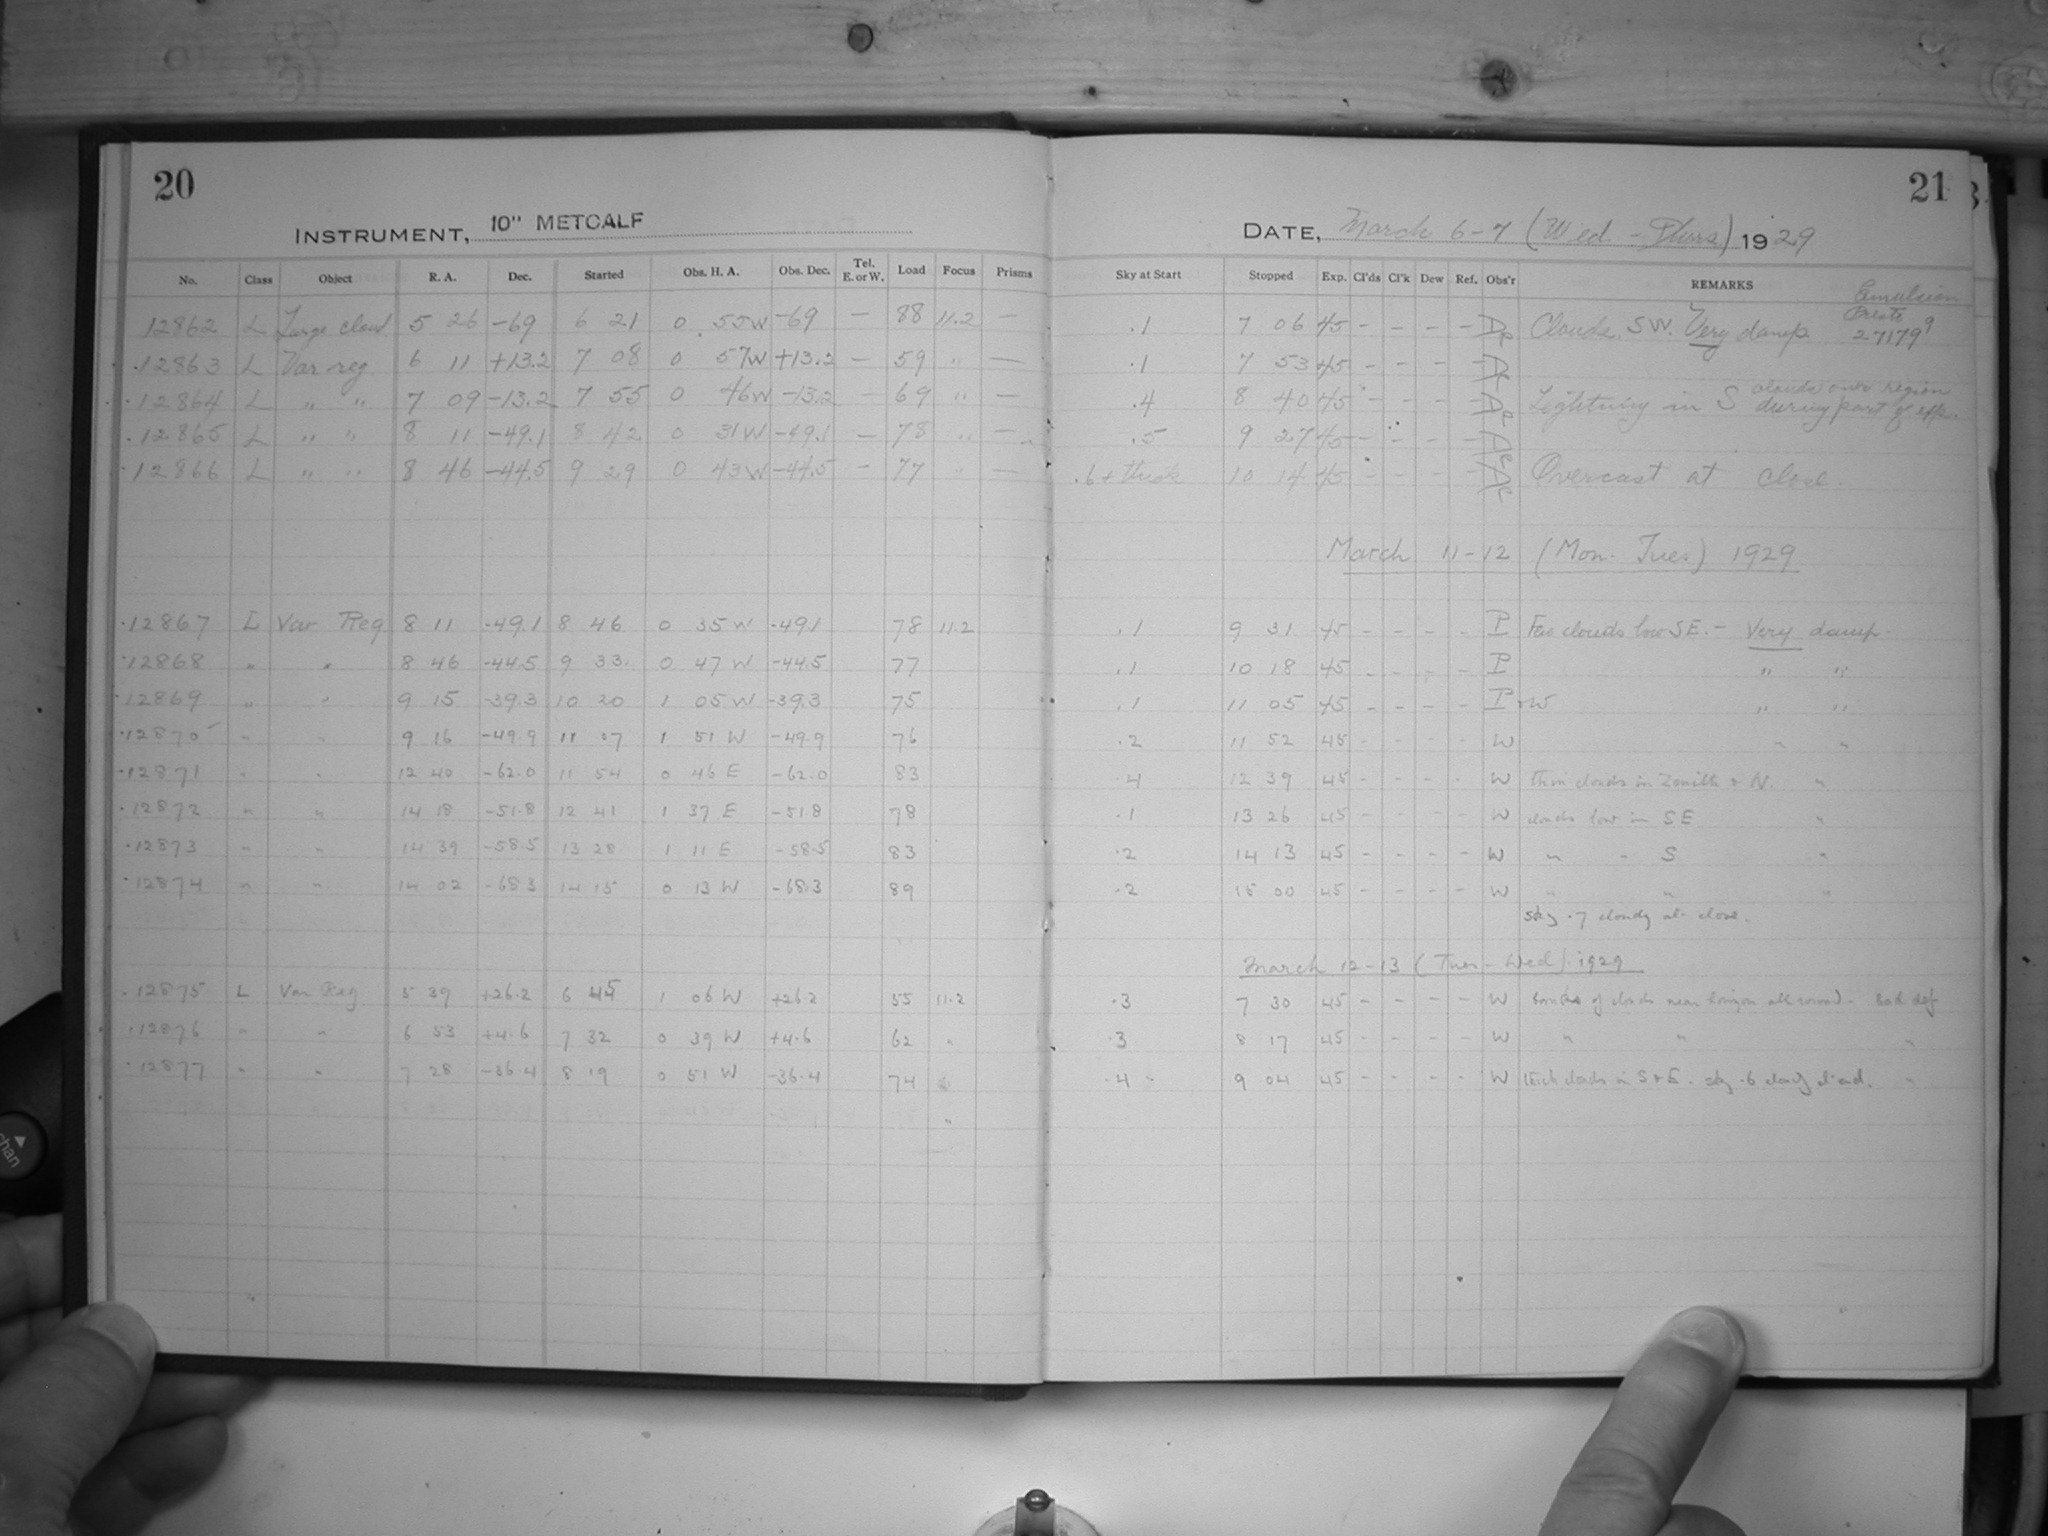 20
INSTRUMENT, 10" METCALF
No. Class Object R. A. Dec. Started Obs. H. A. Obs. Dec. Tel. E. or W. Load Focus Prisms
12862 L Large cloud 5 26 -69 6 21 0 55W -69 — 88 11.2 —
12863 L Var reg. 6 11 +13.2 7 08 0 57W +13.2 — 59 " —
12864 L " " 7 09 -13.2 7 55 0 46W -13.2 — 69 " —
12865 L " " 8 11 -49.1 8 42 0 31W -49.1 — 78 " —
12866 L " " 8 46 -44.5 9 29 0 43W -44.5 — 77 " —
12867 L Var Reg 8 11 -49.1 8 46 0 35W -49.1 78 11.2
12868 " " 8 46 -44.5 9 33 0 47 W -44.5 77
12869 " " 9 15 -39.3 10 20 1 05 W -39.3 75
12870 " " 9 16 -49.9 11 07 1 51 W -49.9 76
12871 " " 12 40 -62.0 11 54 0 46 E -62.0 83
12872 " " 14 18 -51.8 12 41 1 37 E -51.8 78
12873 " " 14 39 -58.5 13 28 1 11 E -58.5 83
12874 " " 14 02 -68.3 14 15 0 13 W -68.3 89
12875 L Var Reg 5 39 +26.2 6 45 1 06 W +26.2 55 11.2
12876 " " 6 53 +4.6 7 32 0 39 W +4.6 62 "
12877 " " 7 28 -36.4 8 19 0 51 W -36.4 74
21
DATE, March 6-7 (Wed. - Thurs) 1929
Sky at Start Stopped Exp. Cl'ds Cl'k Dew Ref. Obs'r REMARKS
Emulsion
.1 7 06 45 - - - - Clouds SW. Very damp 27179
.1 7 53 45 - - - -
.4 8 40 45 - - - - Lightning in S clouds over region during part of
.5 9 27 45 - - - -
.6 + thick 10 14 45 - - - - Overcast at close.
March 11-12 (Mon. Tues.) 1929
.1 9 31 45 - - - - P Few clouds low SE. - Very damp.
.1 10 18 45 - - - - P " "
.1 11 05 45 - - - - P + W " "
.2 11 52 45 - - - - W " "
.4 12 39 45 - - - - W thin clouds in Zenith & N. "
.1 13 26 45 - - - - W clouds low in SE "
.2 14 13 45 - - - - W " " S "
.2 15 00 45 - - - - W " " "
sky .7 cloudy at close.
March 12-13 (Tues - Wed). 1929
.3 7 30 45 - - - - W Banks of clouds near horizon all round. Bad def
.3 8 17 45 - - - - W " " "
.4 9 04 45 - - - - W thick clouds in S & E. sky .6 "